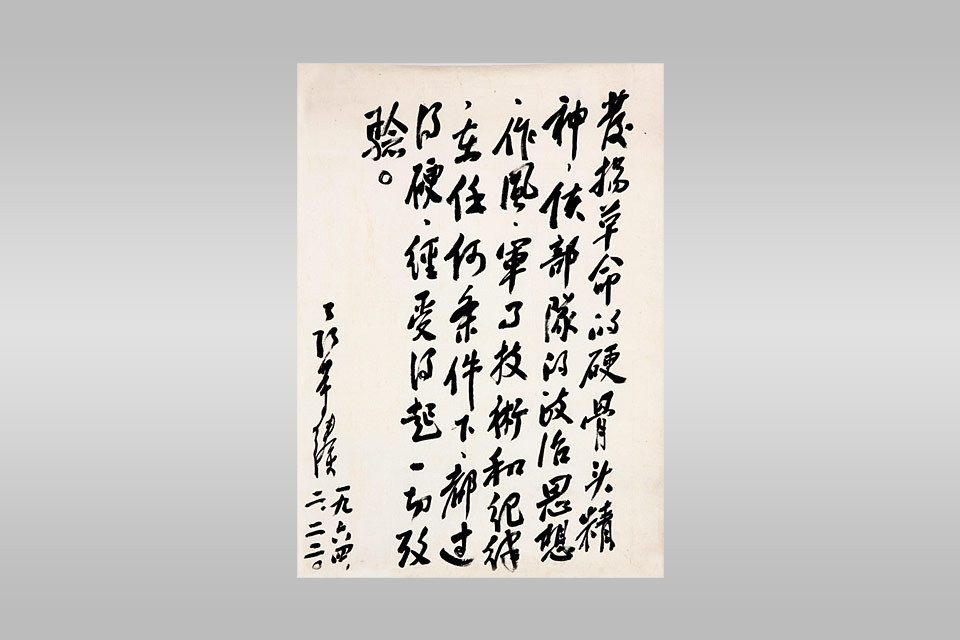 發揚革命的硬骨头精
神、使部隊的政治思想
、作風、軍事技術和紀律
、在任何条件下、都过
得硬、經受得起一切攷
驗。
一九六四、
二、二三。